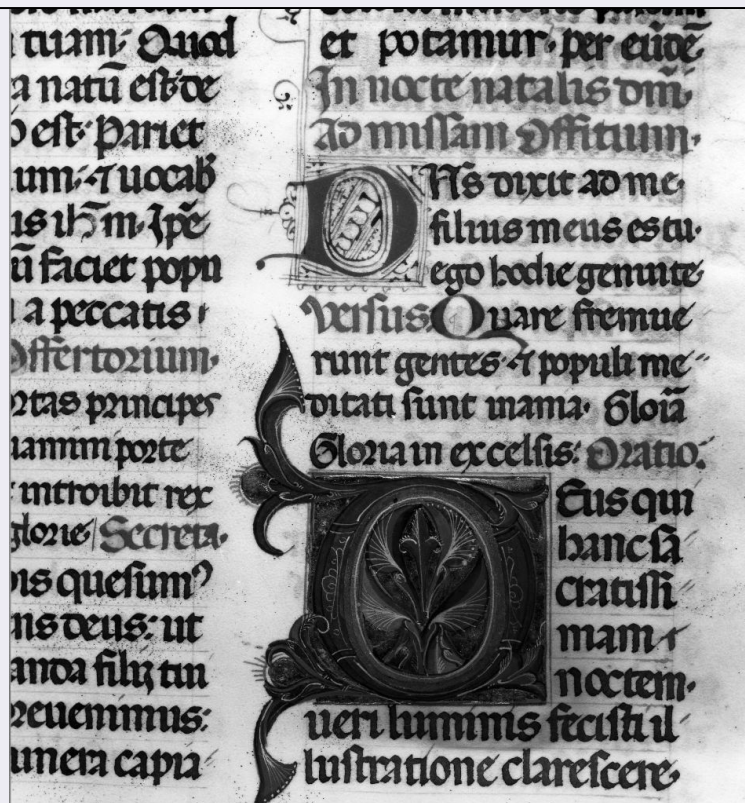 tuam· Quod
a natū est· de
o est· Pariet
um· ⁊ uocab
is ihm̄· Ipē
ū faciet popu
a peccatis
Offertorium·
rtas principes
uamini porte
introibit rex
glorie Secreta·
is quesum⁹
ns deus: ut
anda filij tui
reuenimus:
unera capia
et potamur· per eūdē
In nocte natalis dm̄i·
Ad missam Offitium·
Dn̄s dixit ad me
filius meus es tu·
ego hodie genui te
versus Quare fremue
runt gentes· ⁊ populi me
ditati sunt inania· Gloīa
Gloria in excelsis: Oratio.
Deus qui
hanc sā
cratissi
mam
noctem·
ueri luminis fecisti il
lustratione clarescere·